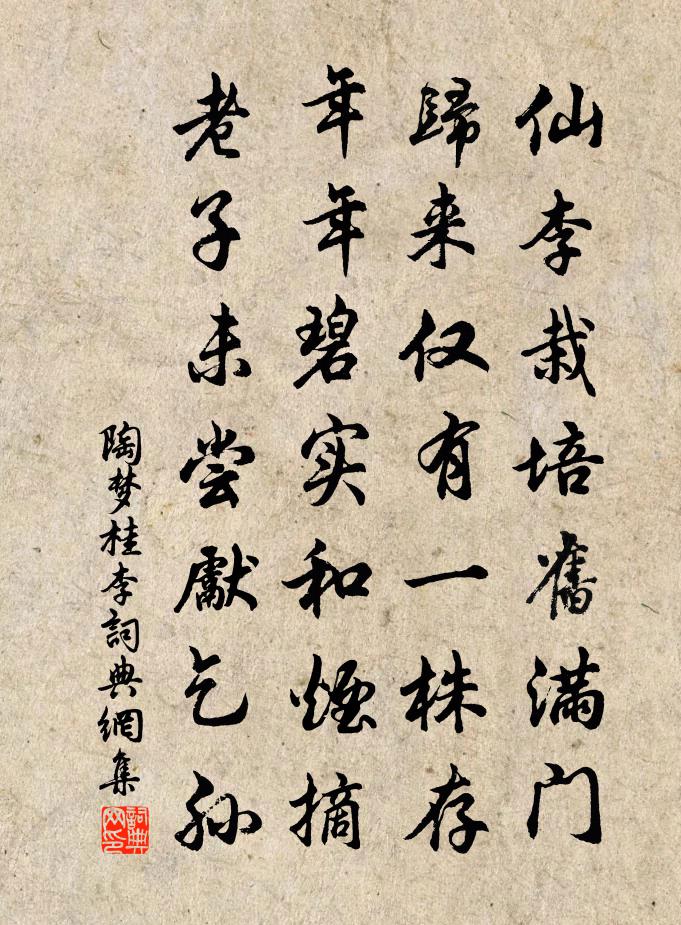 仙李栽培舊满门
歸来仅有一株存
年年碧实和煙摘
老子未尝獻乞孙
陶梦桂李詞典網集
詞典网印